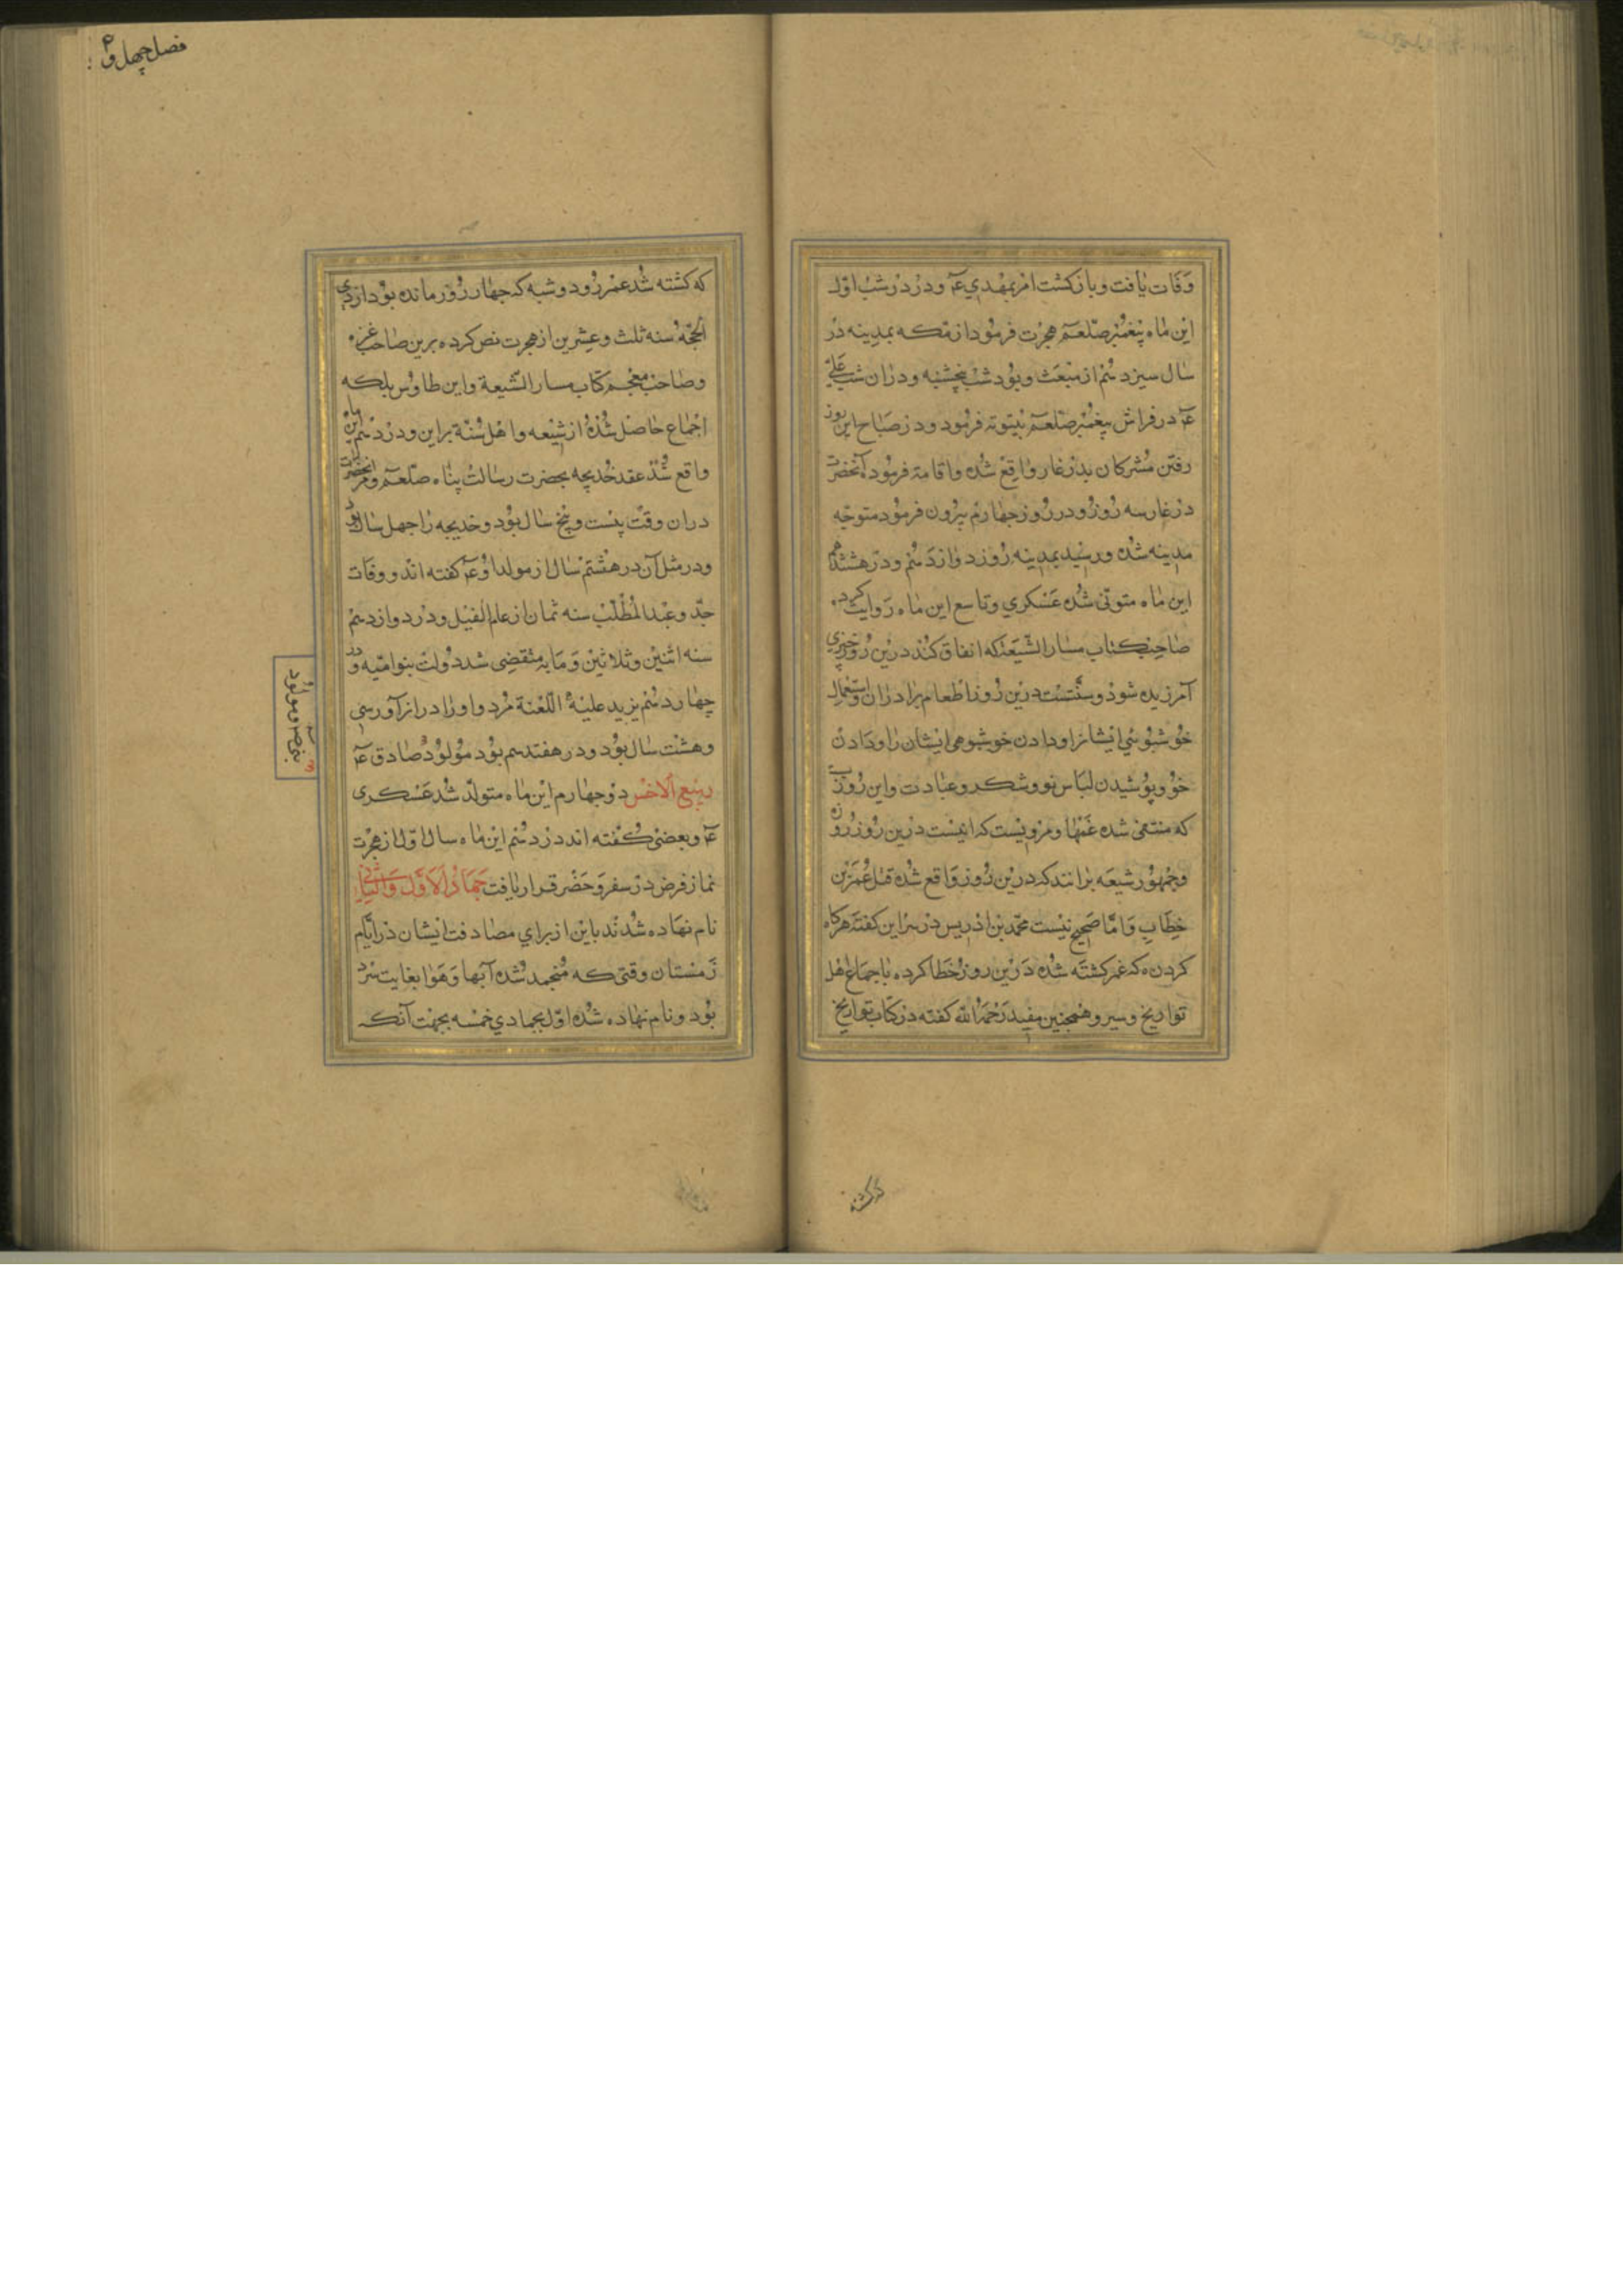 وفات يافت و باز كشت امر بمهدي عۤ و در در شب اوّل
اين ماه پيغمبر صلعم هجرت فرمود از مكه بمدينه در
سال سيزدهم از مبعث و بود شب پنچشنبه و دران شب علي
عۤ در فراش پيغمبر صلعم بيتوته فرمود و در صباح اين روز
رفتن مشركان بدر غار واقع شده و اقامة فرمود آنحضرت
در غار سه روز و در روز جهارم بيرون فرمود متوجّه
مدينه شده و رسيد بمدينه روز دوازدهم و در هشتم
اين ماه متوفّى شده عسكري و تاسع اين ماه روايت كرده
صاحب كتاب مسار الشّيعة كه انفاق كند درين روز چيزي
آمرزيده شود و سنّتست درين روز اطعام برادران و استعمال
خوشبوئي ايشانرا و دادن خوشبوهى ايشان را و دادن
خو و پوشيدن لباس نو و شكر و عبادت و اين روزيست
كه منتفى شده غمها و مرويست كه اينست درين روز روزه
و جمهور شيعه برانند كه درين روز واقع شده قتل عمر بن
خطاب و امّا صحيح نيست محمّد بن ادريس در سراير كفته هر كاه
كردن كه عمر كشته شده درين روز خطا كرده باجماع اهل
تواريخ و سير و همچنين مفيد رحمه الله كفته در كتاب تواريخ
كه كشته
فصل چهل و
كه كشته شد عمر روز دوشبه كه جهار روز مانده بود از ذي
الحجّه سنه ثلث و عشرين از هجرت نص كرده برين صاحب غره
و صاحب معجم كتاب مسار الشّيعة و ابن طاوس بلكه
اجماع حاصل شده از شيعه و اهل سنّة براين و در دهم اين ماه
واقع شد عقد خديجه بحضرت رسالت پناه صلعم و آنحضرت
دران وقت بيست و پنج سال بود و خديجه را جهل سال بود
و در مثل آن در هشتم سال از مولد او عۤ كفته اند و وفات
جدّ و عبد المطّلب سنه ثمان از عام الفيل و در دوازدهم
سنه اثنين و ثلاثين و مايه منقضى شد دولت بنو اميّه و در
چهاردهم يزيد عليه اللّعنة مرد و او را در ان آور سي
و هشت سال بود و در هفتدهم بود مولود صادق عۤ
ربيع الاخر در جهارم اين ماه متولّد شد عسكرى
عۤ و بعضى كفته اند در دهم اين ماه سال اوّل از هجرت
نماز فرض در سفر و حضر قرار يافت جماد الاوّل و الثّاني
نام نهاده شدند باين از براي مصادفت ايشان در ايّام
زمستان وقتى كه منجمد شده آبها و هوا بغايت سرد
بود و نام نهاده شده اوّل بجمادي خمسه بجهت آنكه